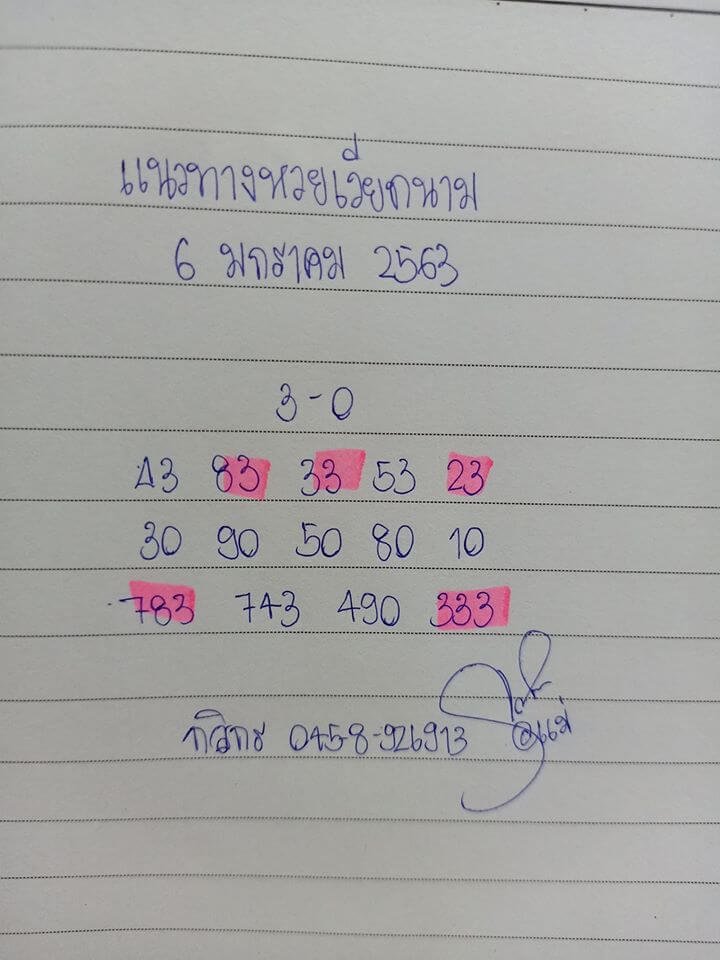 แนวทางหวยเวียดนาม
6 มกราคม 2563
3-0
43 83 33 53 23
30 90 50 80 10
783 743 490 333
0458-926913 @แม่